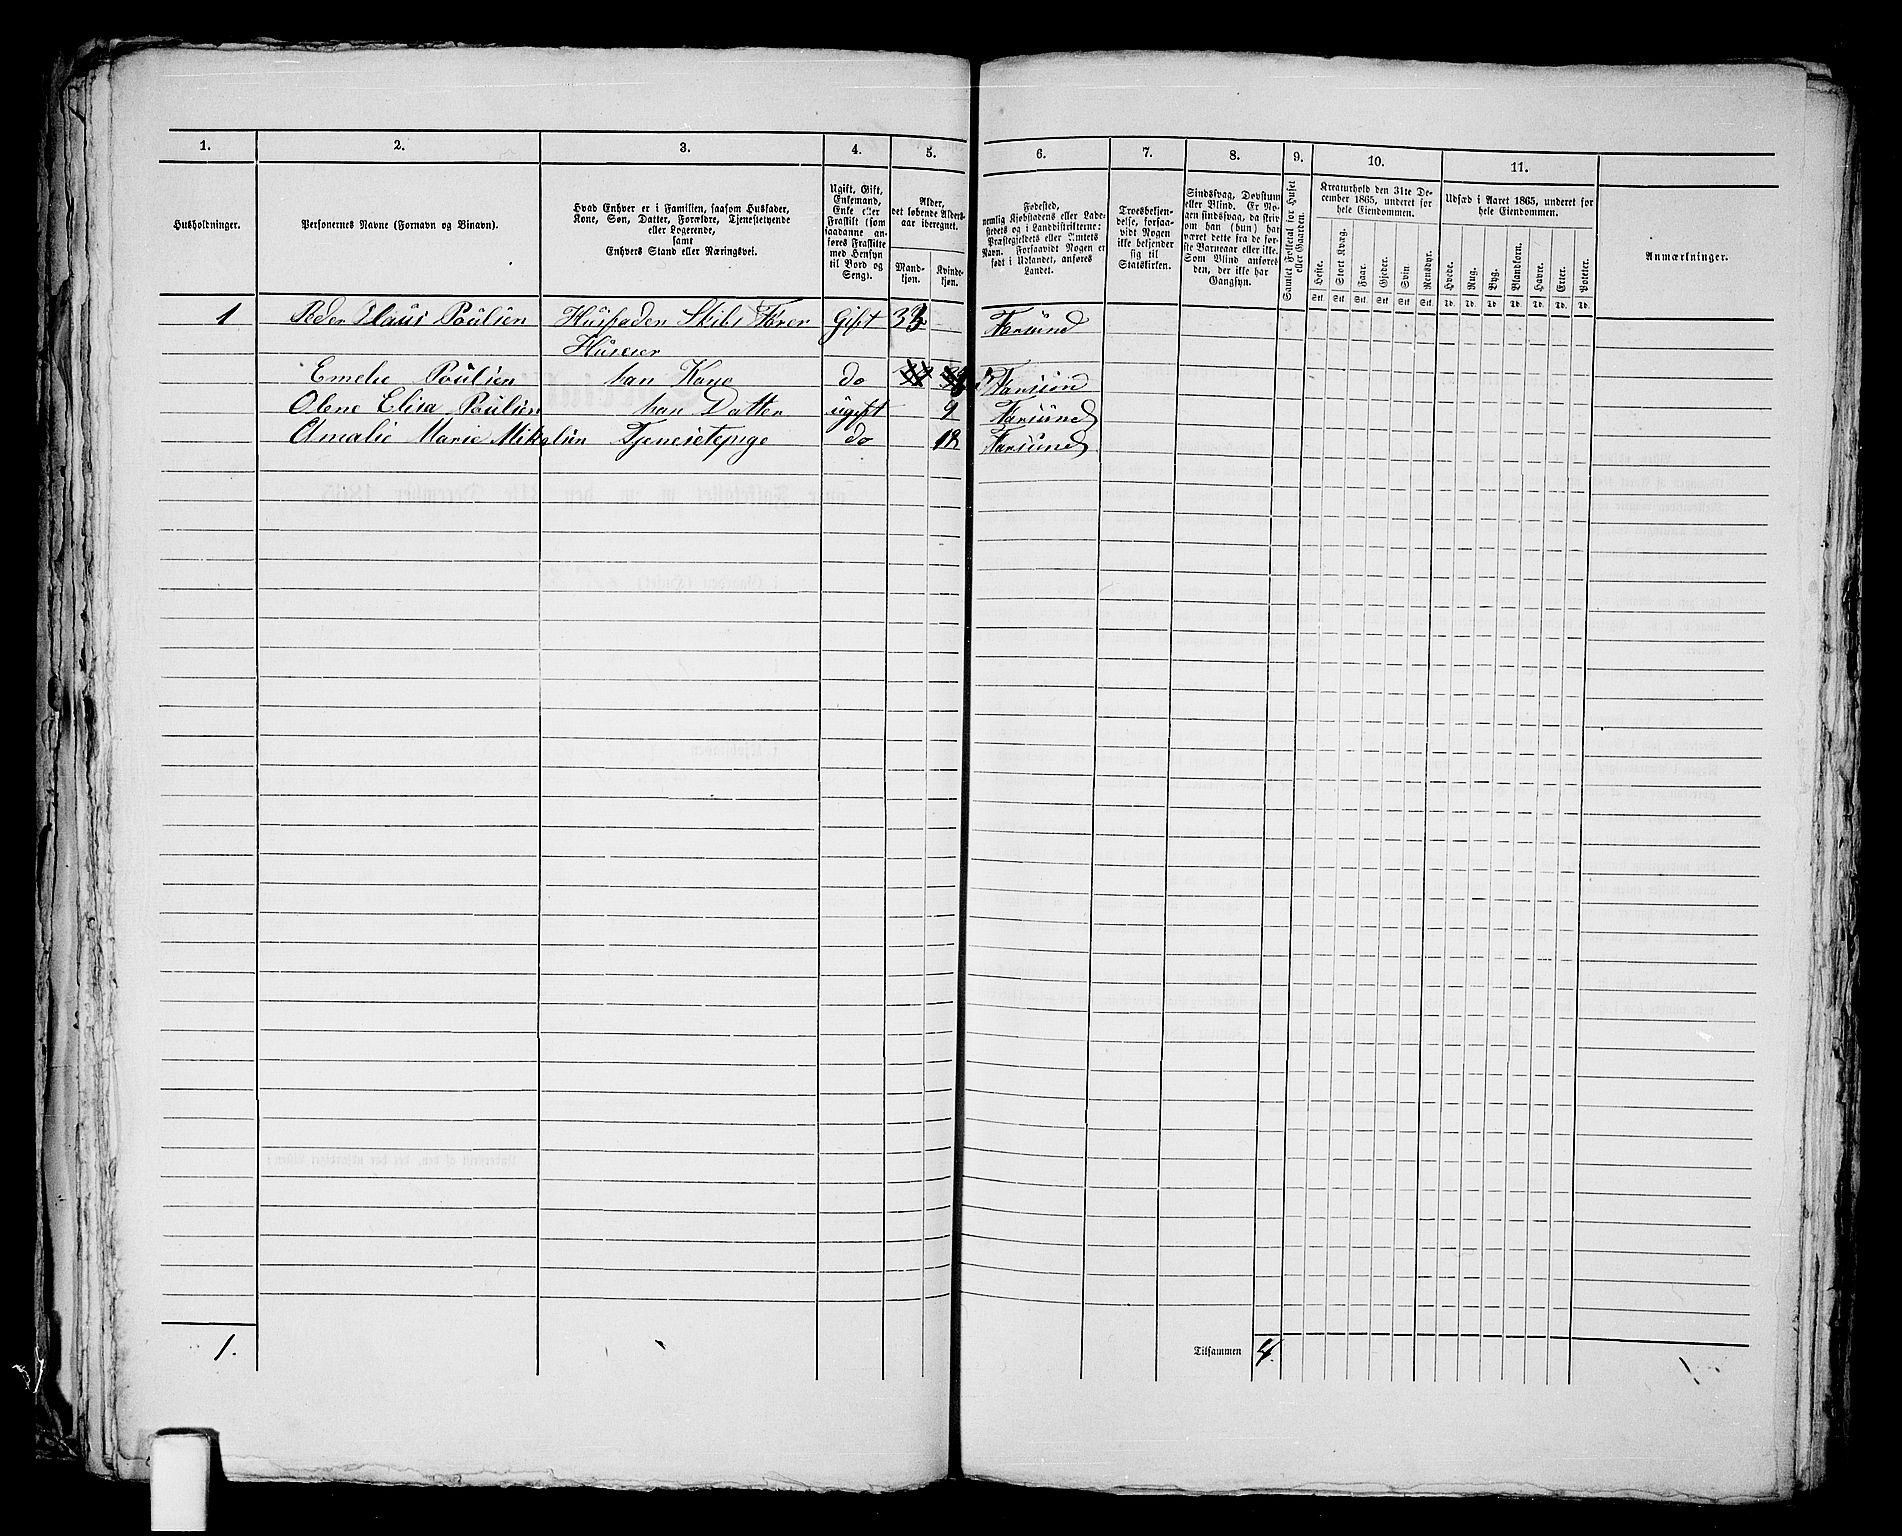 1.
2.
3.
4.
5.
6.
7.
8.
9.
10.
11.
Husholdninger.
Personernes Navne (Fornavn og Binavn).
Hvad Enhver er i Familien, saasom Husfader,
Kone, Søn, Datter, Forældre, Tjenestetyende
eller Logerende,
samt
Enhvers Stand eller Næringsvei.
Ugift, Gift,
Enkemand,
Enke eller
Fraskilt (som
saadanne an-
føres Fraskilte
med Hensyn
til Bord og
Seng).
Alder,
det løbende Alders-
aar iberegnet.
Mand-
kjøn.
Kvinde-
kjøn.
Fødested,
nemlig Kjøbstadens eller Lade-
stedets og i Landdistrikterne:
Præstegjeldets eller Amtets
Navn. Forsaavidt Nogen er
født i Udlandet, anføres
Landet.
Troesbekjen-
delse, forsaa-
vidt Nogen
ikke bekjender
sig til
Statskirken.
Sindssvag, Døvstum
eller Blind. Er No-
gen sindssvag, da skriv
om han (hun) har
været dette fra de før-
ste Barneaar eller ikke.
Som Blind anføres
den, der ikke har
Gangsyn.
Samlet Folketal for Huset
eller Gaarden.
Kreaturhold den 31te De-
cember 1865, underet for
hele Eiendommen.
Heste.
Stort Kvæg.
Faar.
Gjeder.
Svin
Rensdyr.
Stk. Stk. Stk. Stk. Stk. Stk.
Udsæd i Aaret 1865, underet for
hele Eiendommen.
Hvede.
Rug.
Byg.
Blandkorn.
Havre.
Erter.
Poteter.
Td. Td. Td. Td. Td. Td. Td.
Anmærkninger.
1 Peder Claus Poulsen Husfader Skibs Fører Gift 33 Farsund
Huseier
Emelie Poulsen han Kone do Farsund
Olene Elisa Poulsen han Datter ugift 9 Farsund
Amalie Marie Mikelsen Tjenestepige do 18 Farsund
1.
Tilsammen 4.